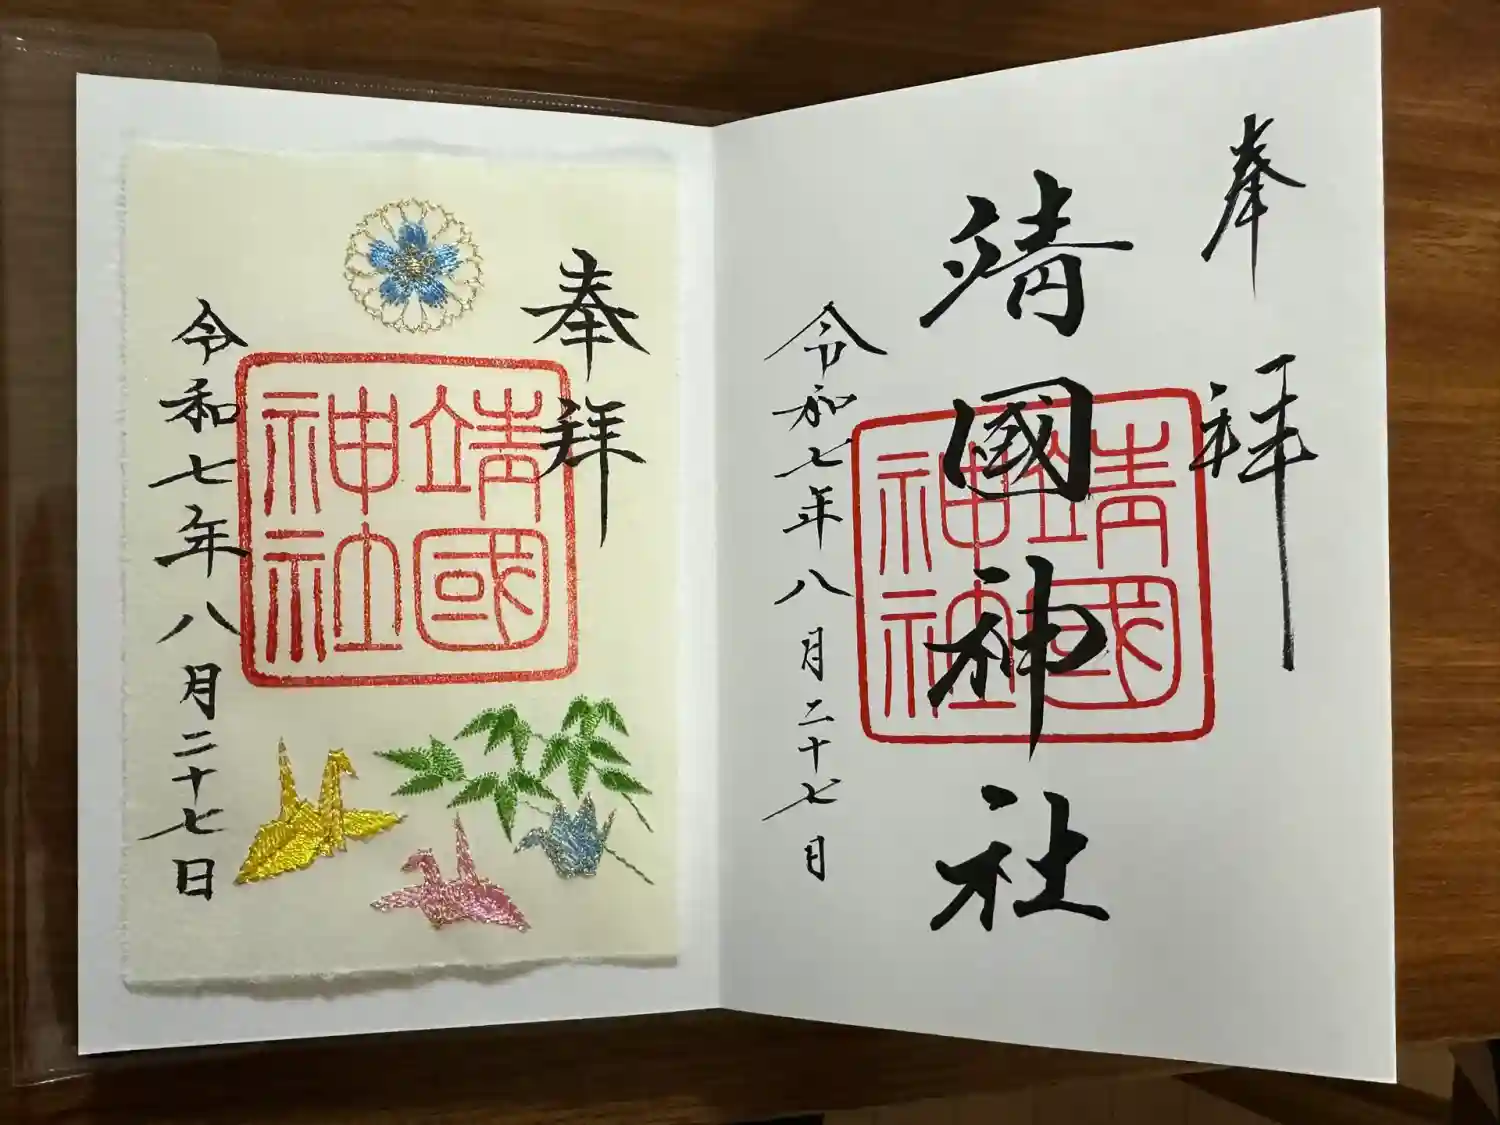 奉拝
靖國神社
靖國神社
令和七年八月二十七日
奉拝
靖國神社
令和七年八月二十七日